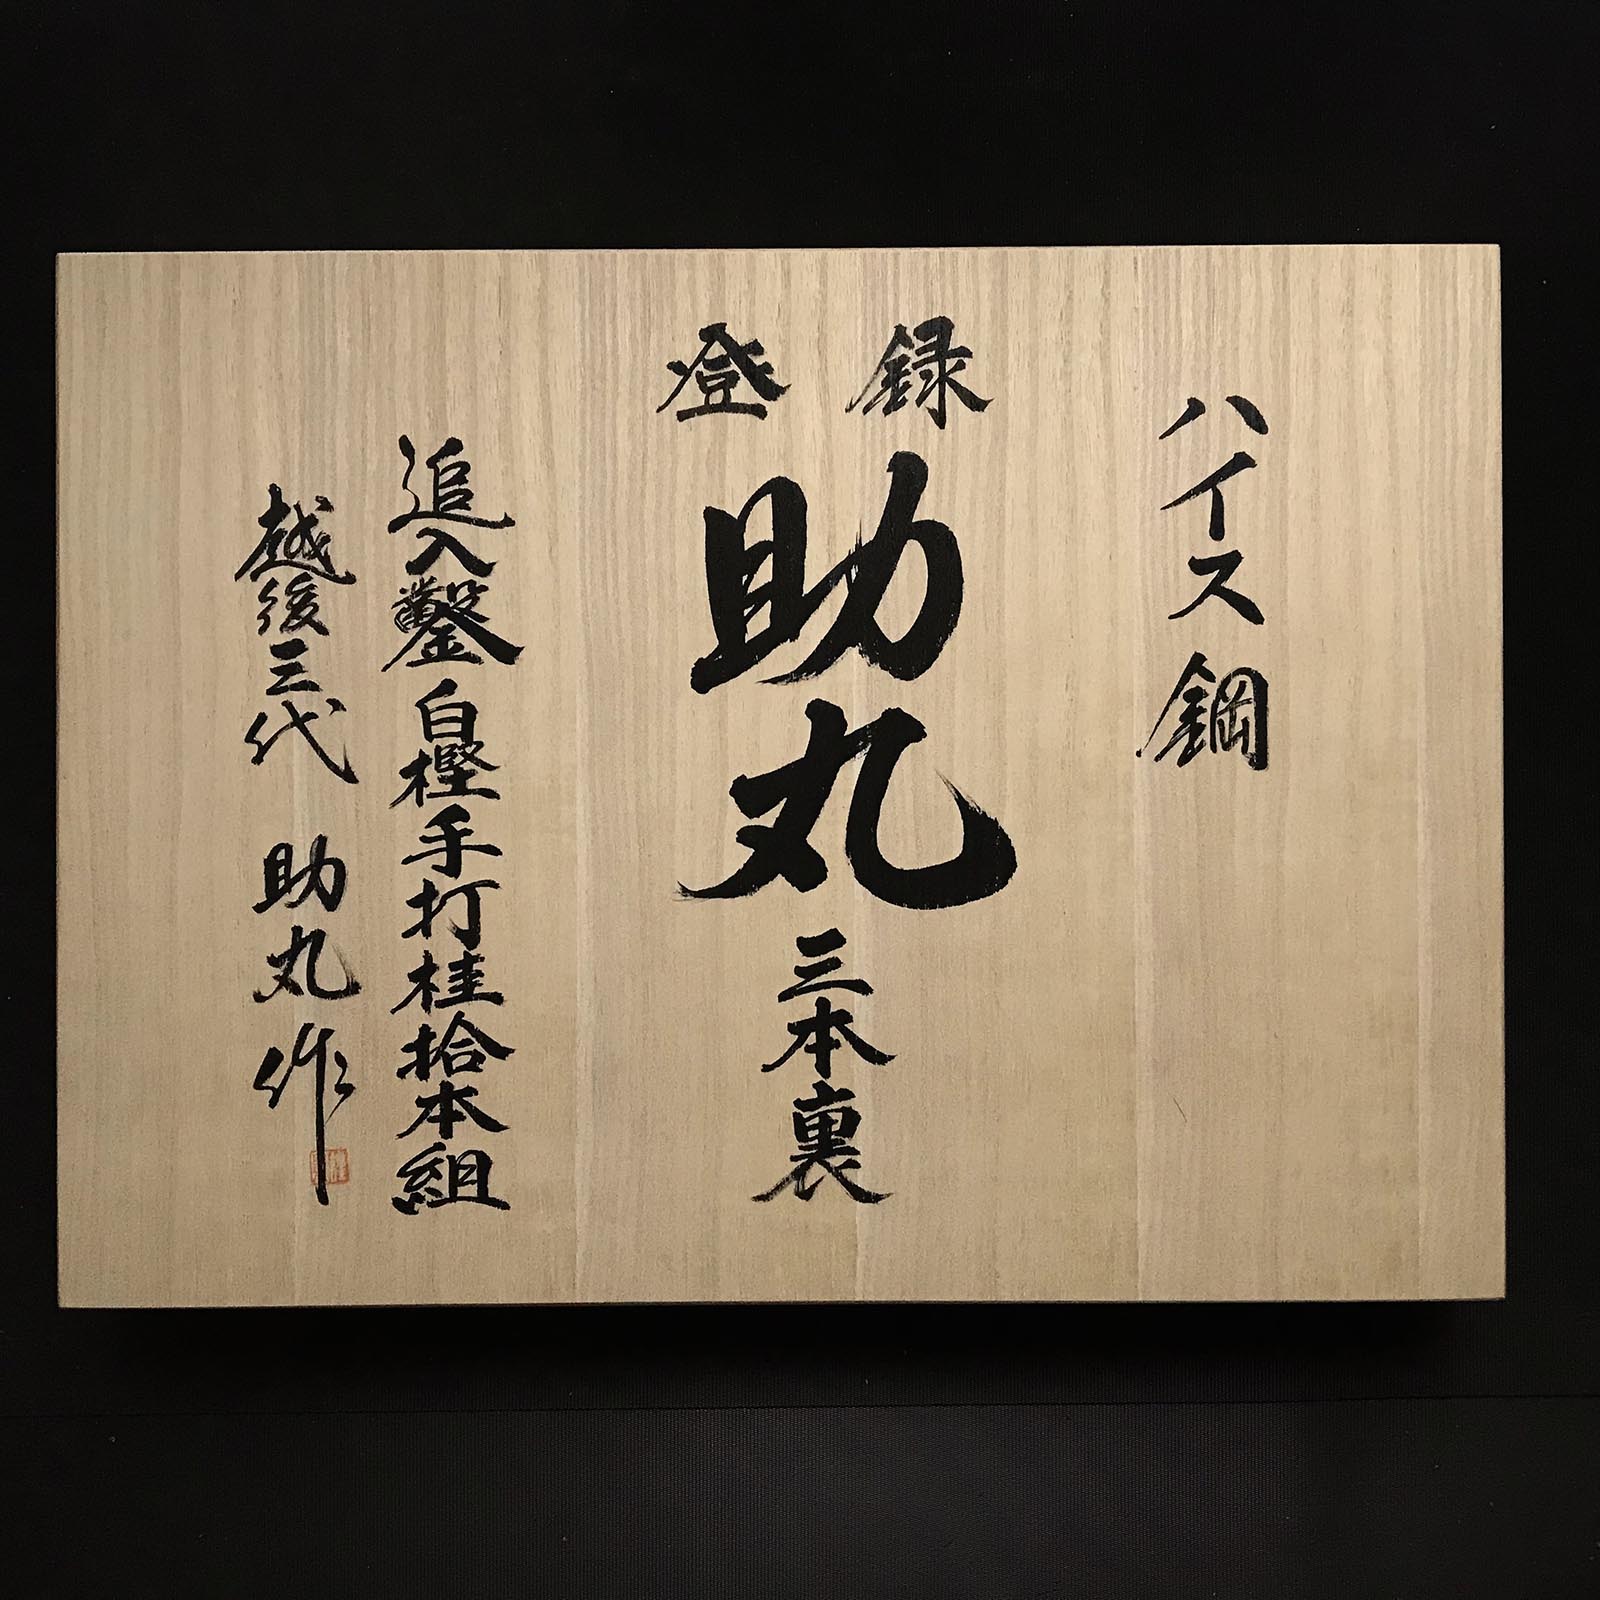 ハイス鋼
登録
助丸三本裏
追入鑿白樫手打桂拾本組
越後三代 助丸作